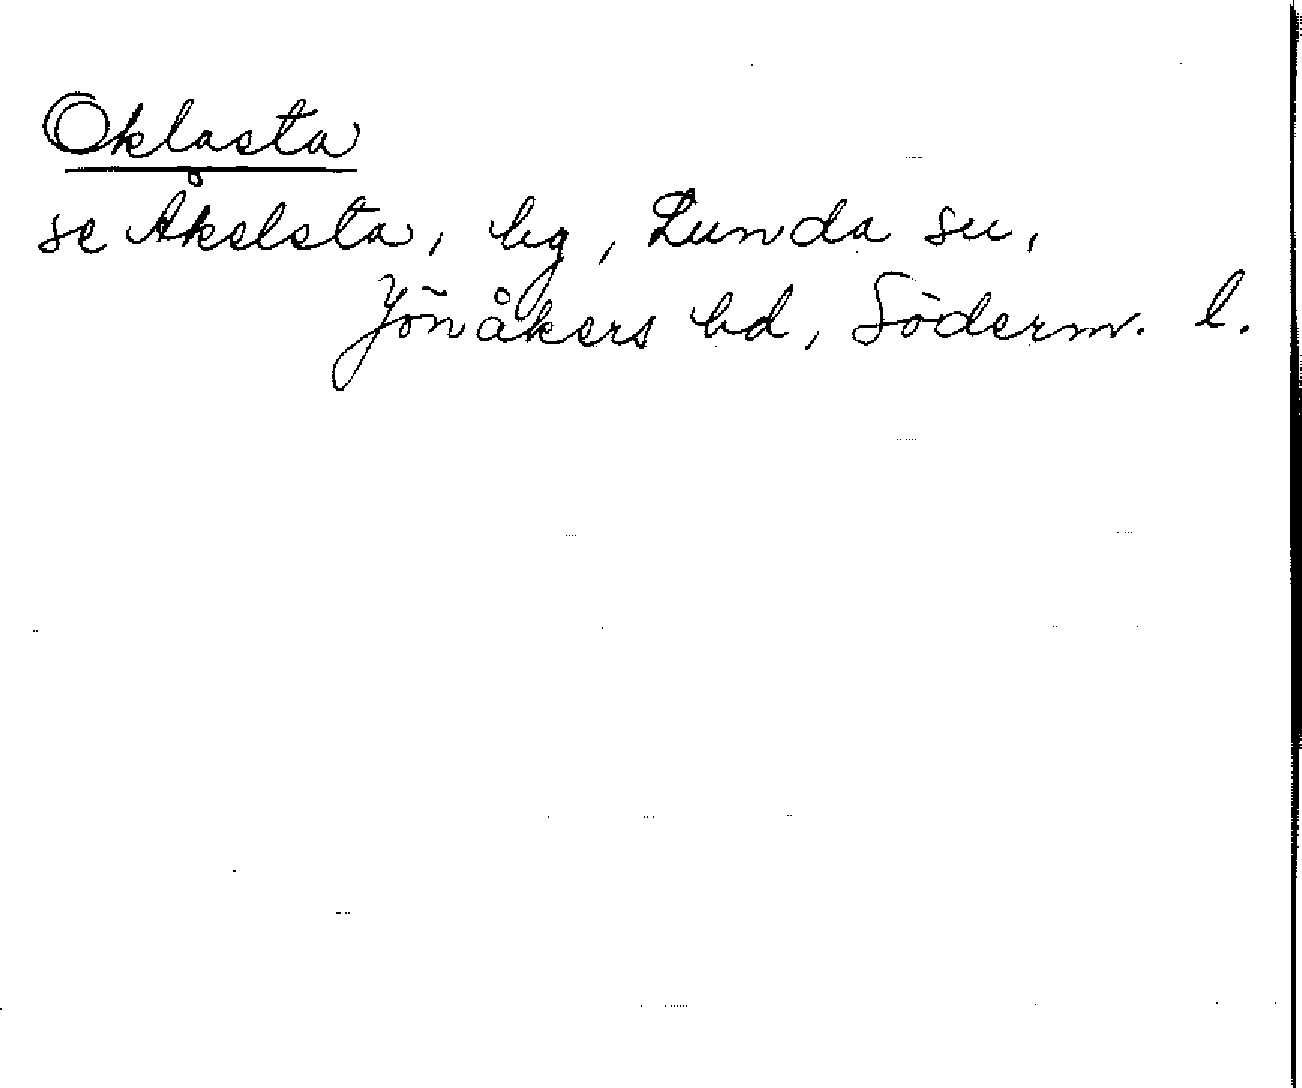 Oklasta
se Åkelsta, by, Lunda sn,
Jönåkers hd, Söderm. l.